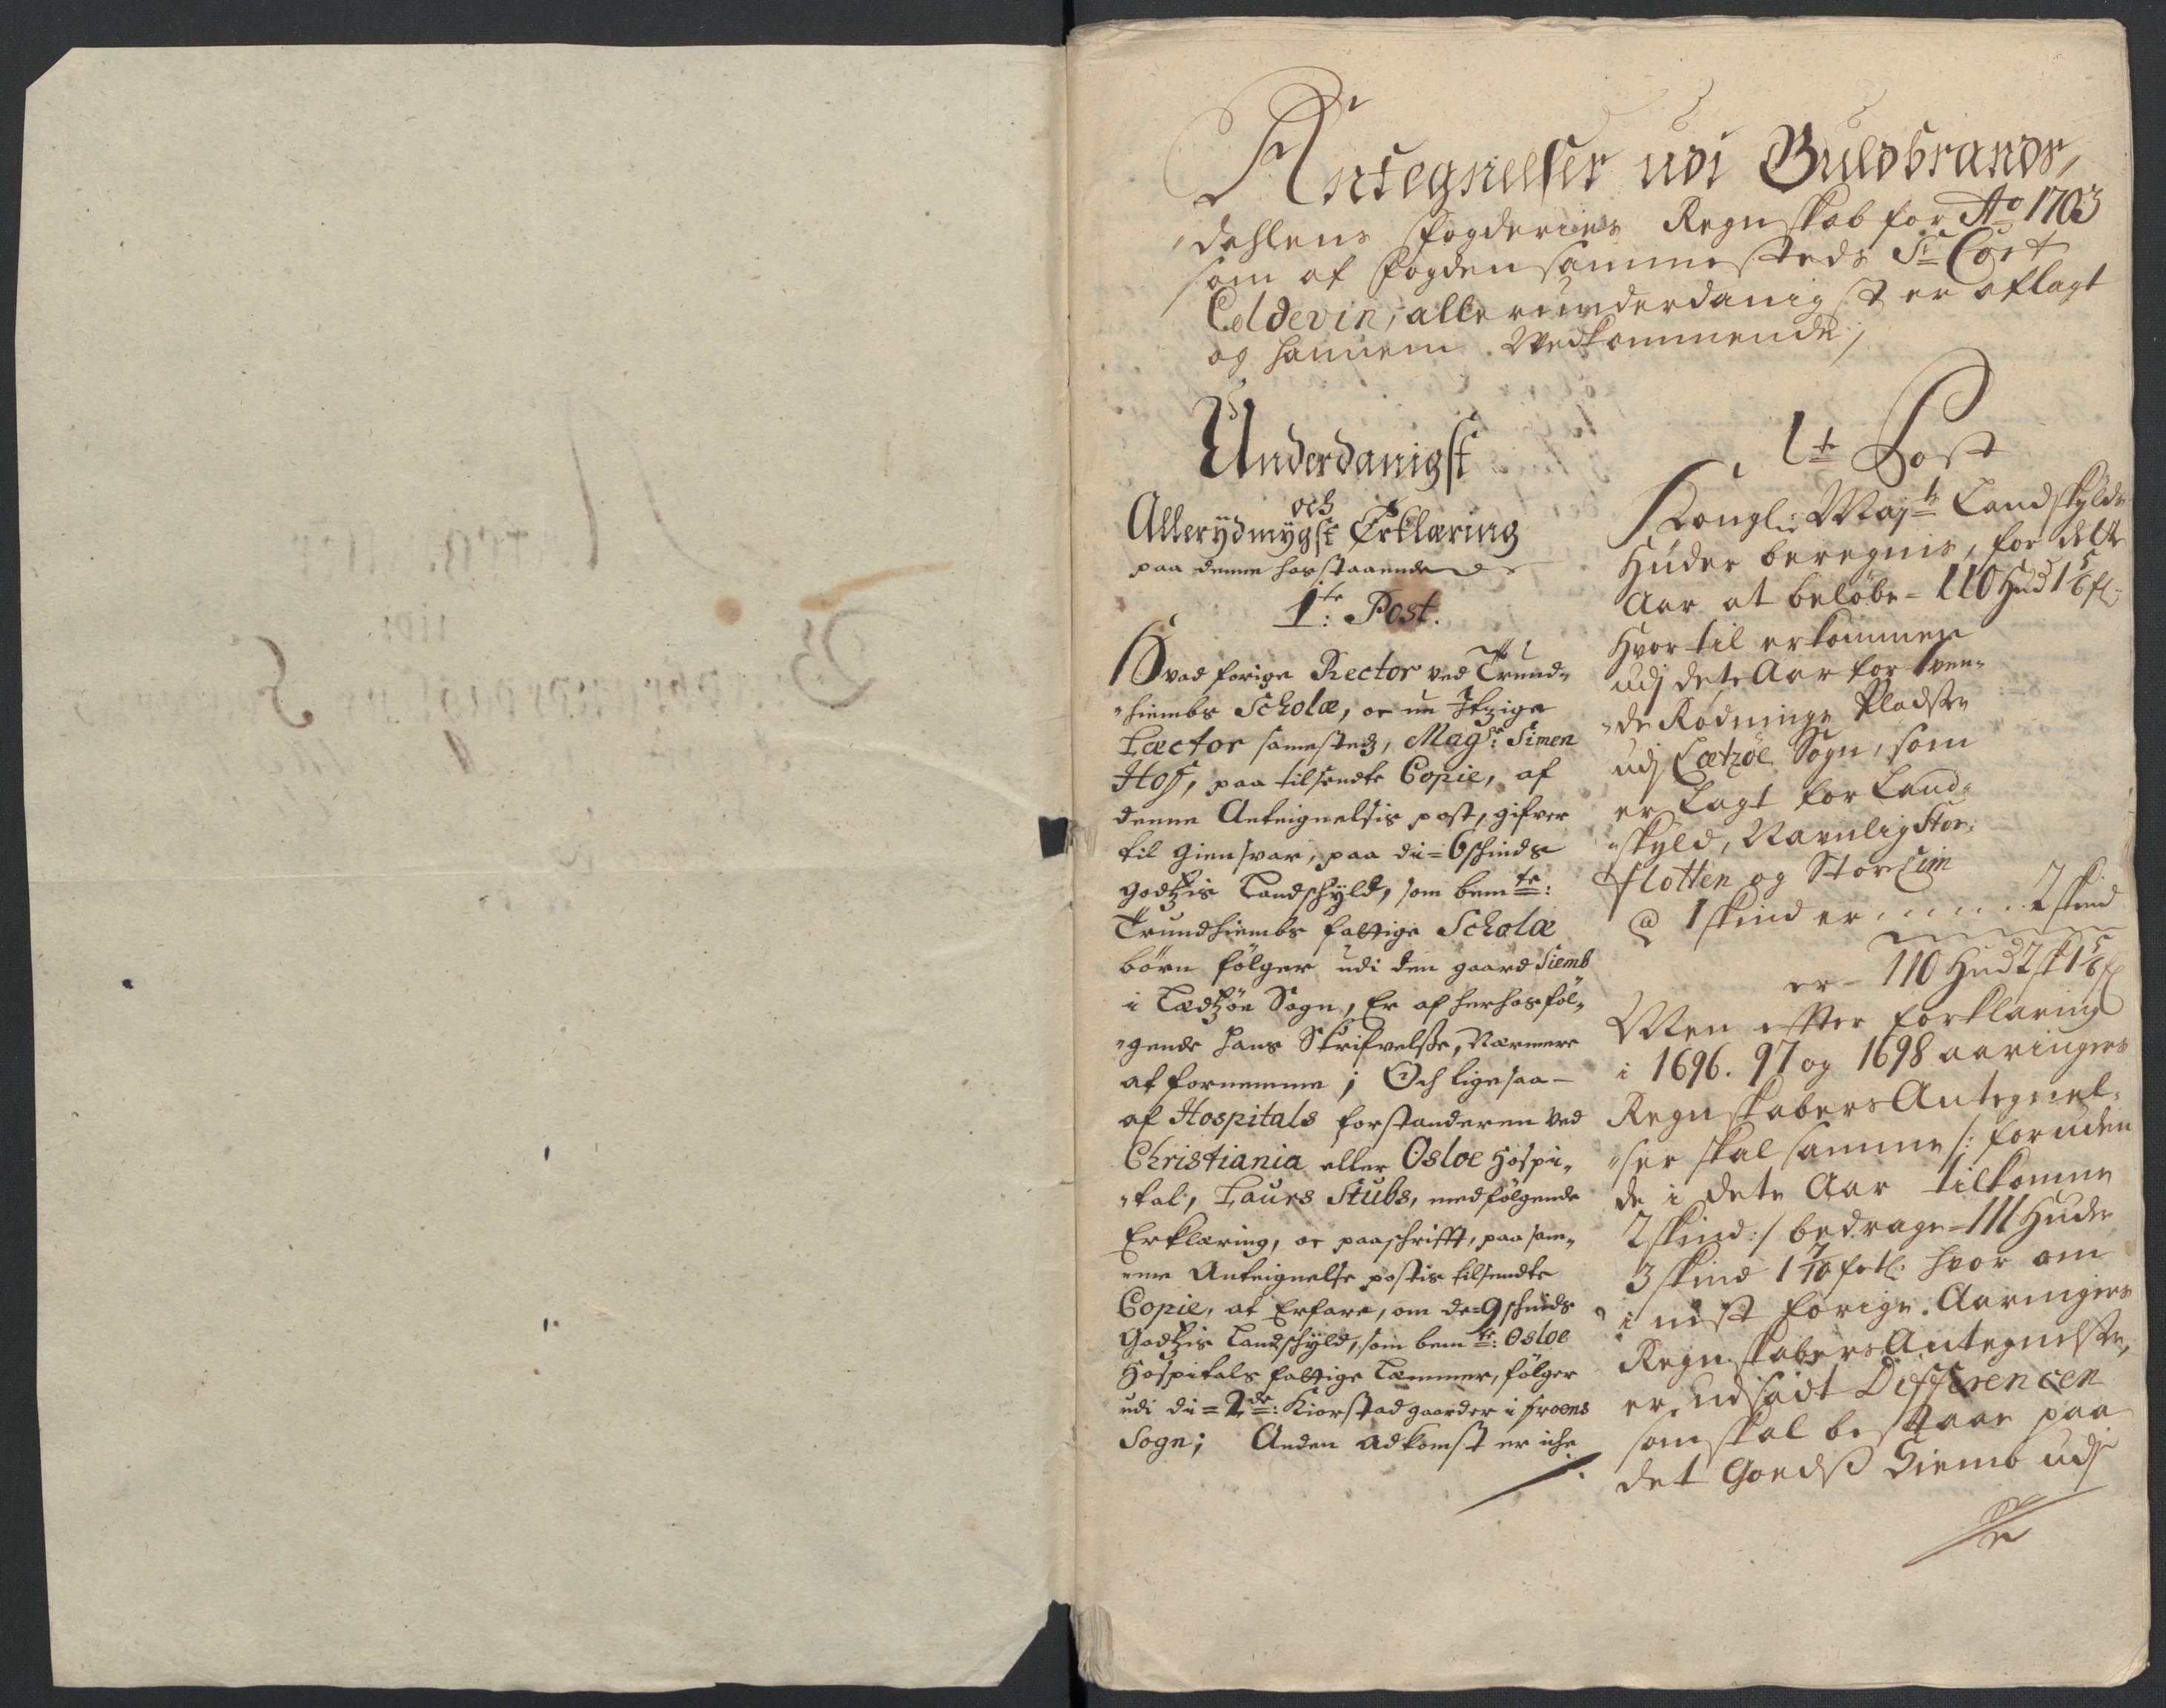 Antegnelser udi Guldbrands,
"dahlens fogderies Regnskab for Ao 1703
som af fogden sammesteds Sr Cort
Coldevin, allerunderdanigst er aflagt
og hannem Vedkommende,
Underdanigst
och
Allerydmygst Erklæring
paa denne hosstaaende
1te: Post.
Hvad forige Rector ved Trund,,
"hiembs Scholæ, oc nu Itzige
Lector samestedz, Magsr: Simen
Hof, paa tilsendte Copie, af
denne Anteignelsis post, gifver
til giensvar, paa di=6 schinds
godtzis Landschyld, som bemte:
Trundhiembs fattige Scholæ
børn følger udi den gaard Siemb
i Lædtzøe Sogn, Er af herhos føl,,
"gende hans Skrifvelsse, Nærmere
at fornemme; Och ligesaa-
af Hospitals forstanderen ved
Christiania eller Osloe Hospi,,
"tal, Laurs Stubs, medfølgende
Erklæring, oc paaschrifft, paa sam,,
"me Anteignelse postis tilsendte
Copie, at Erfare, om de=9 schinds
Godtzis Landschyld, som bemte: Osloe
Hospitals fattige Lemmer, følger
udi di=2de: Kiorstad gaarder i froens
Sogn; Anden adkomst er iche
1te Post
Kongl: Mayts Landskylds
Huder beregnis, for dette
Aar at beløbe = 110 Hud 1 5/6 fl:
Hvortil er kommen
udj dete Aar for tven,,
"de Rødnings Pladser
udj Lætzøe Sogn, som
er Lagt for Land,,
"skyld, Navnlig Stor,,
flotten og StorLiin
@ 1 skind er . . . . . . 2 skind
er - 110 Hud 2 sk 1 5/6 fl
Men effter forklaring
i 1696. 97 og 1698 aaringers
Regnskabers Antegnel,,
"ser skal samme /: foruden
de i dete Aar tilkomne
2 skind :/ bedrage = 111 Huder
3 skind 1 7/10 fetl: hvor om
i nest forige Aaringers
Regnskabers Antegnelser,
er udsadt Differencen
som skal bestaae paa
det Goedß Siemb udj